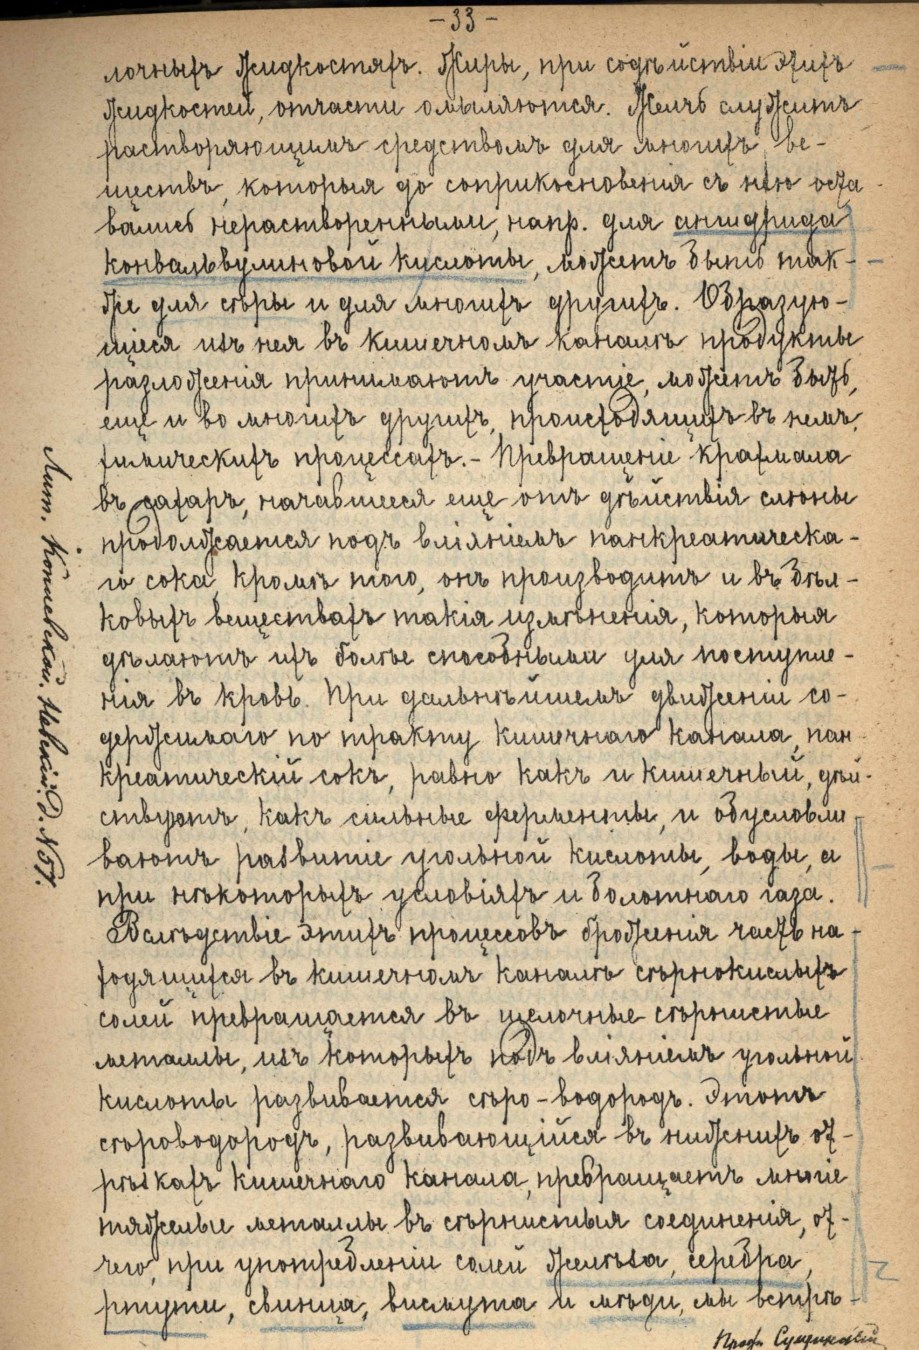 -33-
лочныхъ жидкостяхъ. Жиры, при содѣйствіи этихъ
жидкостей, отчасти омыляются. Желчь служитъ
растворяющимъ средствомъ для многихъ ве-
ществъ, которыя до соприкосновенія съ нею оста
вались нерастворенными, напр. для ангидрида
конвальвулиновой кислоты, можетъ быть так-
же для сѣры и для многихъ другихъ. Образую-
щіеся изъ нея въ кишечномъ каналѣ продукты
разложенія принимаютъ участіе, можетъ быть,
еще и во многихъ другихъ, происходящихъ въ немъ,
химическихъ процессахъ.- Превращеніе крахмала
въ сахаръ, начавшееся еще отъ дѣйствія слюны
продолжается подъ вліяніемъ панкреатическа-
го сока, кромѣ того, онъ производитъ и въ бѣл-
ковыхъ веществахъ такія измѣненія, которыя
дѣлаютъ ихъ болѣе способными для поступле-
нія въ кровь. При дальнѣйшемъ движеніи со-
держимаго по тракту кишечнаго канала, пан
креатическій сокъ, равно какъ и кишечный, дѣй-
ствуютъ, какъ сильные ферменты, и обусловли
ваютъ развитіе угольной кислоты, воды, а
при нѣкоторыхъ условіяхъ и болотнаго газа.
Вслѣдствіе этихъ процессовъ броженія часть на-
ходящихся въ кишечномъ каналѣ сѣрнокислыхъ
солей превращается въ щелочные сѣрнистые
металлы, изъ которыхъ подъ вліяніемъ угольной
кислоты развивается сѣро-водородъ. Этотъ
сѣроводородъ, развивающійся въ нижнихъ от-
рѣзкахъ кишечнаго канала, превращаетъ многіе
тяжелые металлы въ сѣрнистыя соединенія, от-
чего, при употребленіи солей желѣза, серебра,
ртути, свинца, висмута и мѣди, мы встрѣ-
Проф. Сущинскій
Лит. Невскій. Д. №